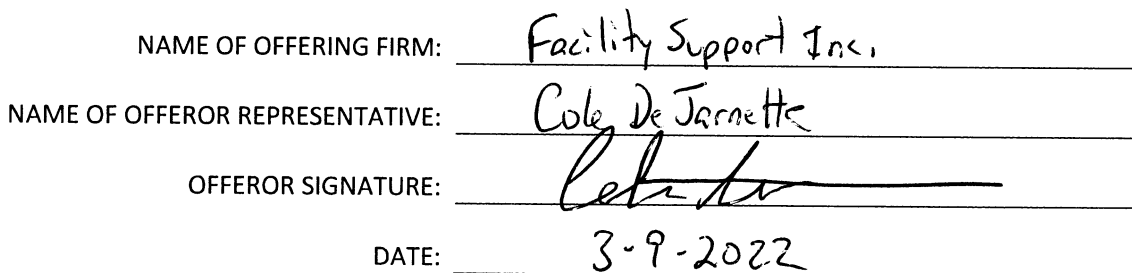 NAME OF OFFERING FIRM: Facility Support Inc.
NAME OF OFFEROR REPRESENTATIVE: Cole De Jarnette
OFFEROR SIGNATURE:
DATE: 3-9-2022